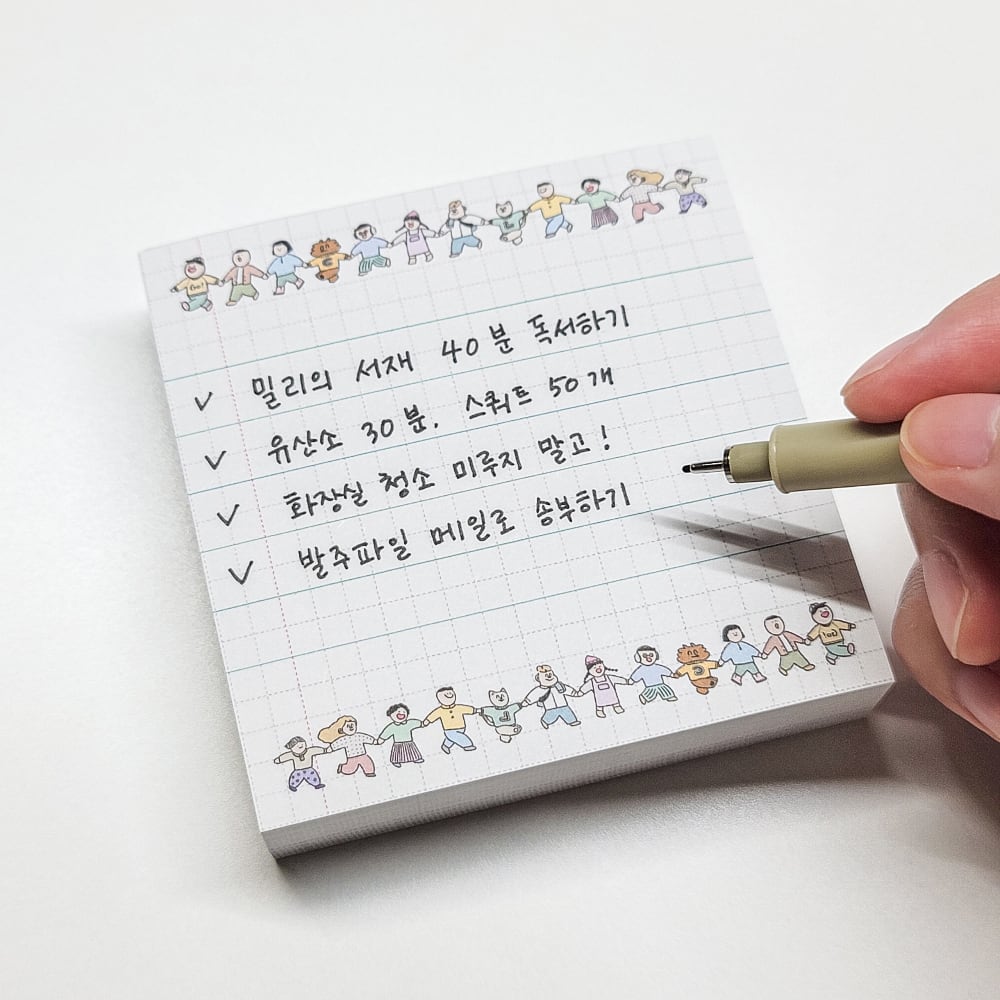 ✓ 밀리의 서재 40분 독서하기
✓ 유산소 30분. 스쿼트 50개
✓ 화장실 청소 미루지 말고!
✓ 발주파일 메일로 송부하기